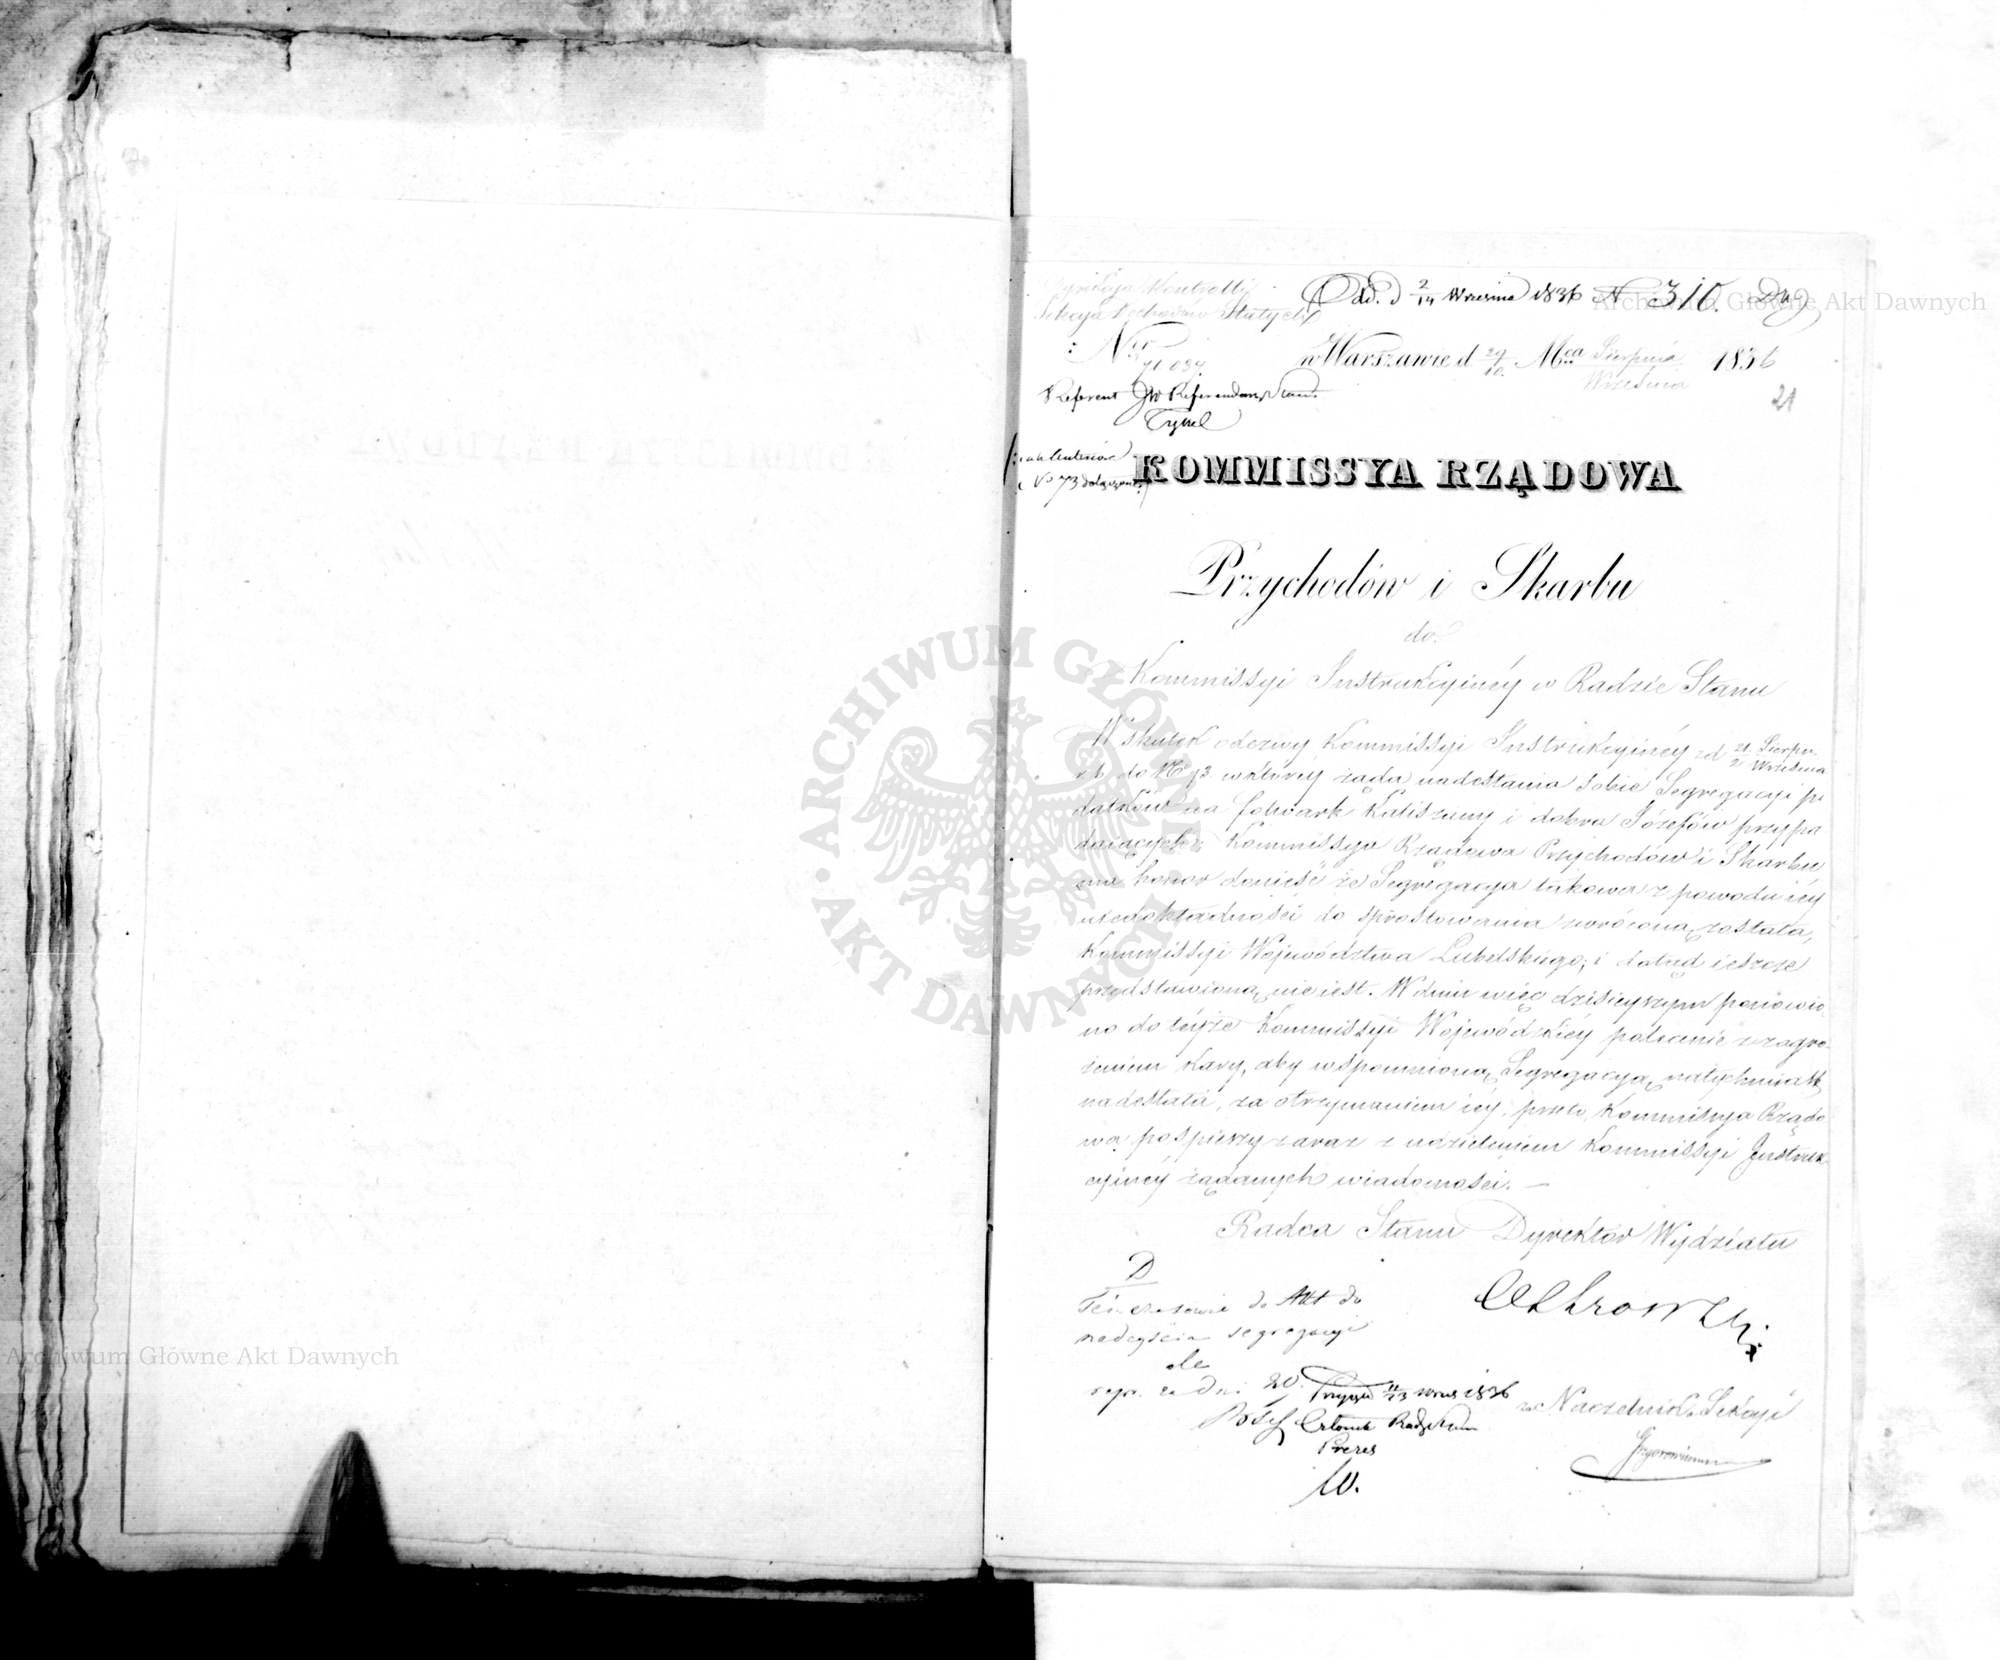 Dyrekcya Kontrolli
Sekcya Dochodów Stałych
Odd. d 2/14 Września 1836 N 310.
Nr 71 037
w Warszawie d 29/10. Mca Sierpnia/Września 1836
Referent JW Referendarz Stanu
Tykel
21
N 73 dołączone
KOMMISSYA RZĄDOWA
Przychodów i Skarbu
do
Kommissyi Instrukcyinéy w Radzie Stanu
W skutek odezwy Kommissyi Instrukcyinéy z d 21 Sierpn./2 Września
r b do No 73 w któréy żąda nadesłania sobie Segregacyi po
datków na folwark Kaliszany i dobra Józefów przypa
daiących; Kommissya Rządowa Przychodów i Skarbu
ma honor donieść że Segregacya takowa z powodu iéy
niedokładności do sprostowania zwróconą została,
Kommissyi Województwa Lubelskiego, i dotąd ieszcze
przedstawioną nie iest. W dniu więc dzisieyszym ponowio
no do téyże Kommissyi Wojewódzkiéy polecenie z zagro
żeniem kary, aby wspomnioną Segregacyą natychmiast
nadesłała, za otrzymaniem iéy, przeto Kommissya Rządo
wa pospieszy zaraz z udzieleniem Kommissyi Instruk
cyinéy żądanych wiadomości. —
Radca Stanu Dyrektor Wydziału
D
Tymczasowie do Akt do
nadeyścia segregacyi
repr. za dni 20.
11/23 Wrześ 1836
Członek Rady Stanu
Prezes
za Naczelnik Sekcyi